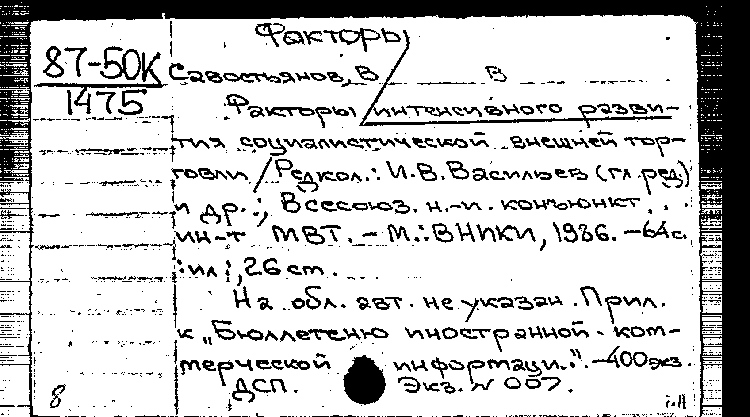 Факторы
87-50К
1475
Савостьянов, В В
Факторы интенсивного разви-
тия социалистической внешней тор-
говли / Редкол.: И.В.Васильев (гл.ред.)
и др.; Всесоюз. н.-и. конъюнкт.
ин-т МВТ. - М.: ВНИКИ, 1986. - 64 с.
: ил ; 26 cm.
На обл. авт. не указан. Прил.
к „Бюллетеню иностранной ком-
мерческой информаци.". - 400 экз.
ДСП. Экз. N 007.
8